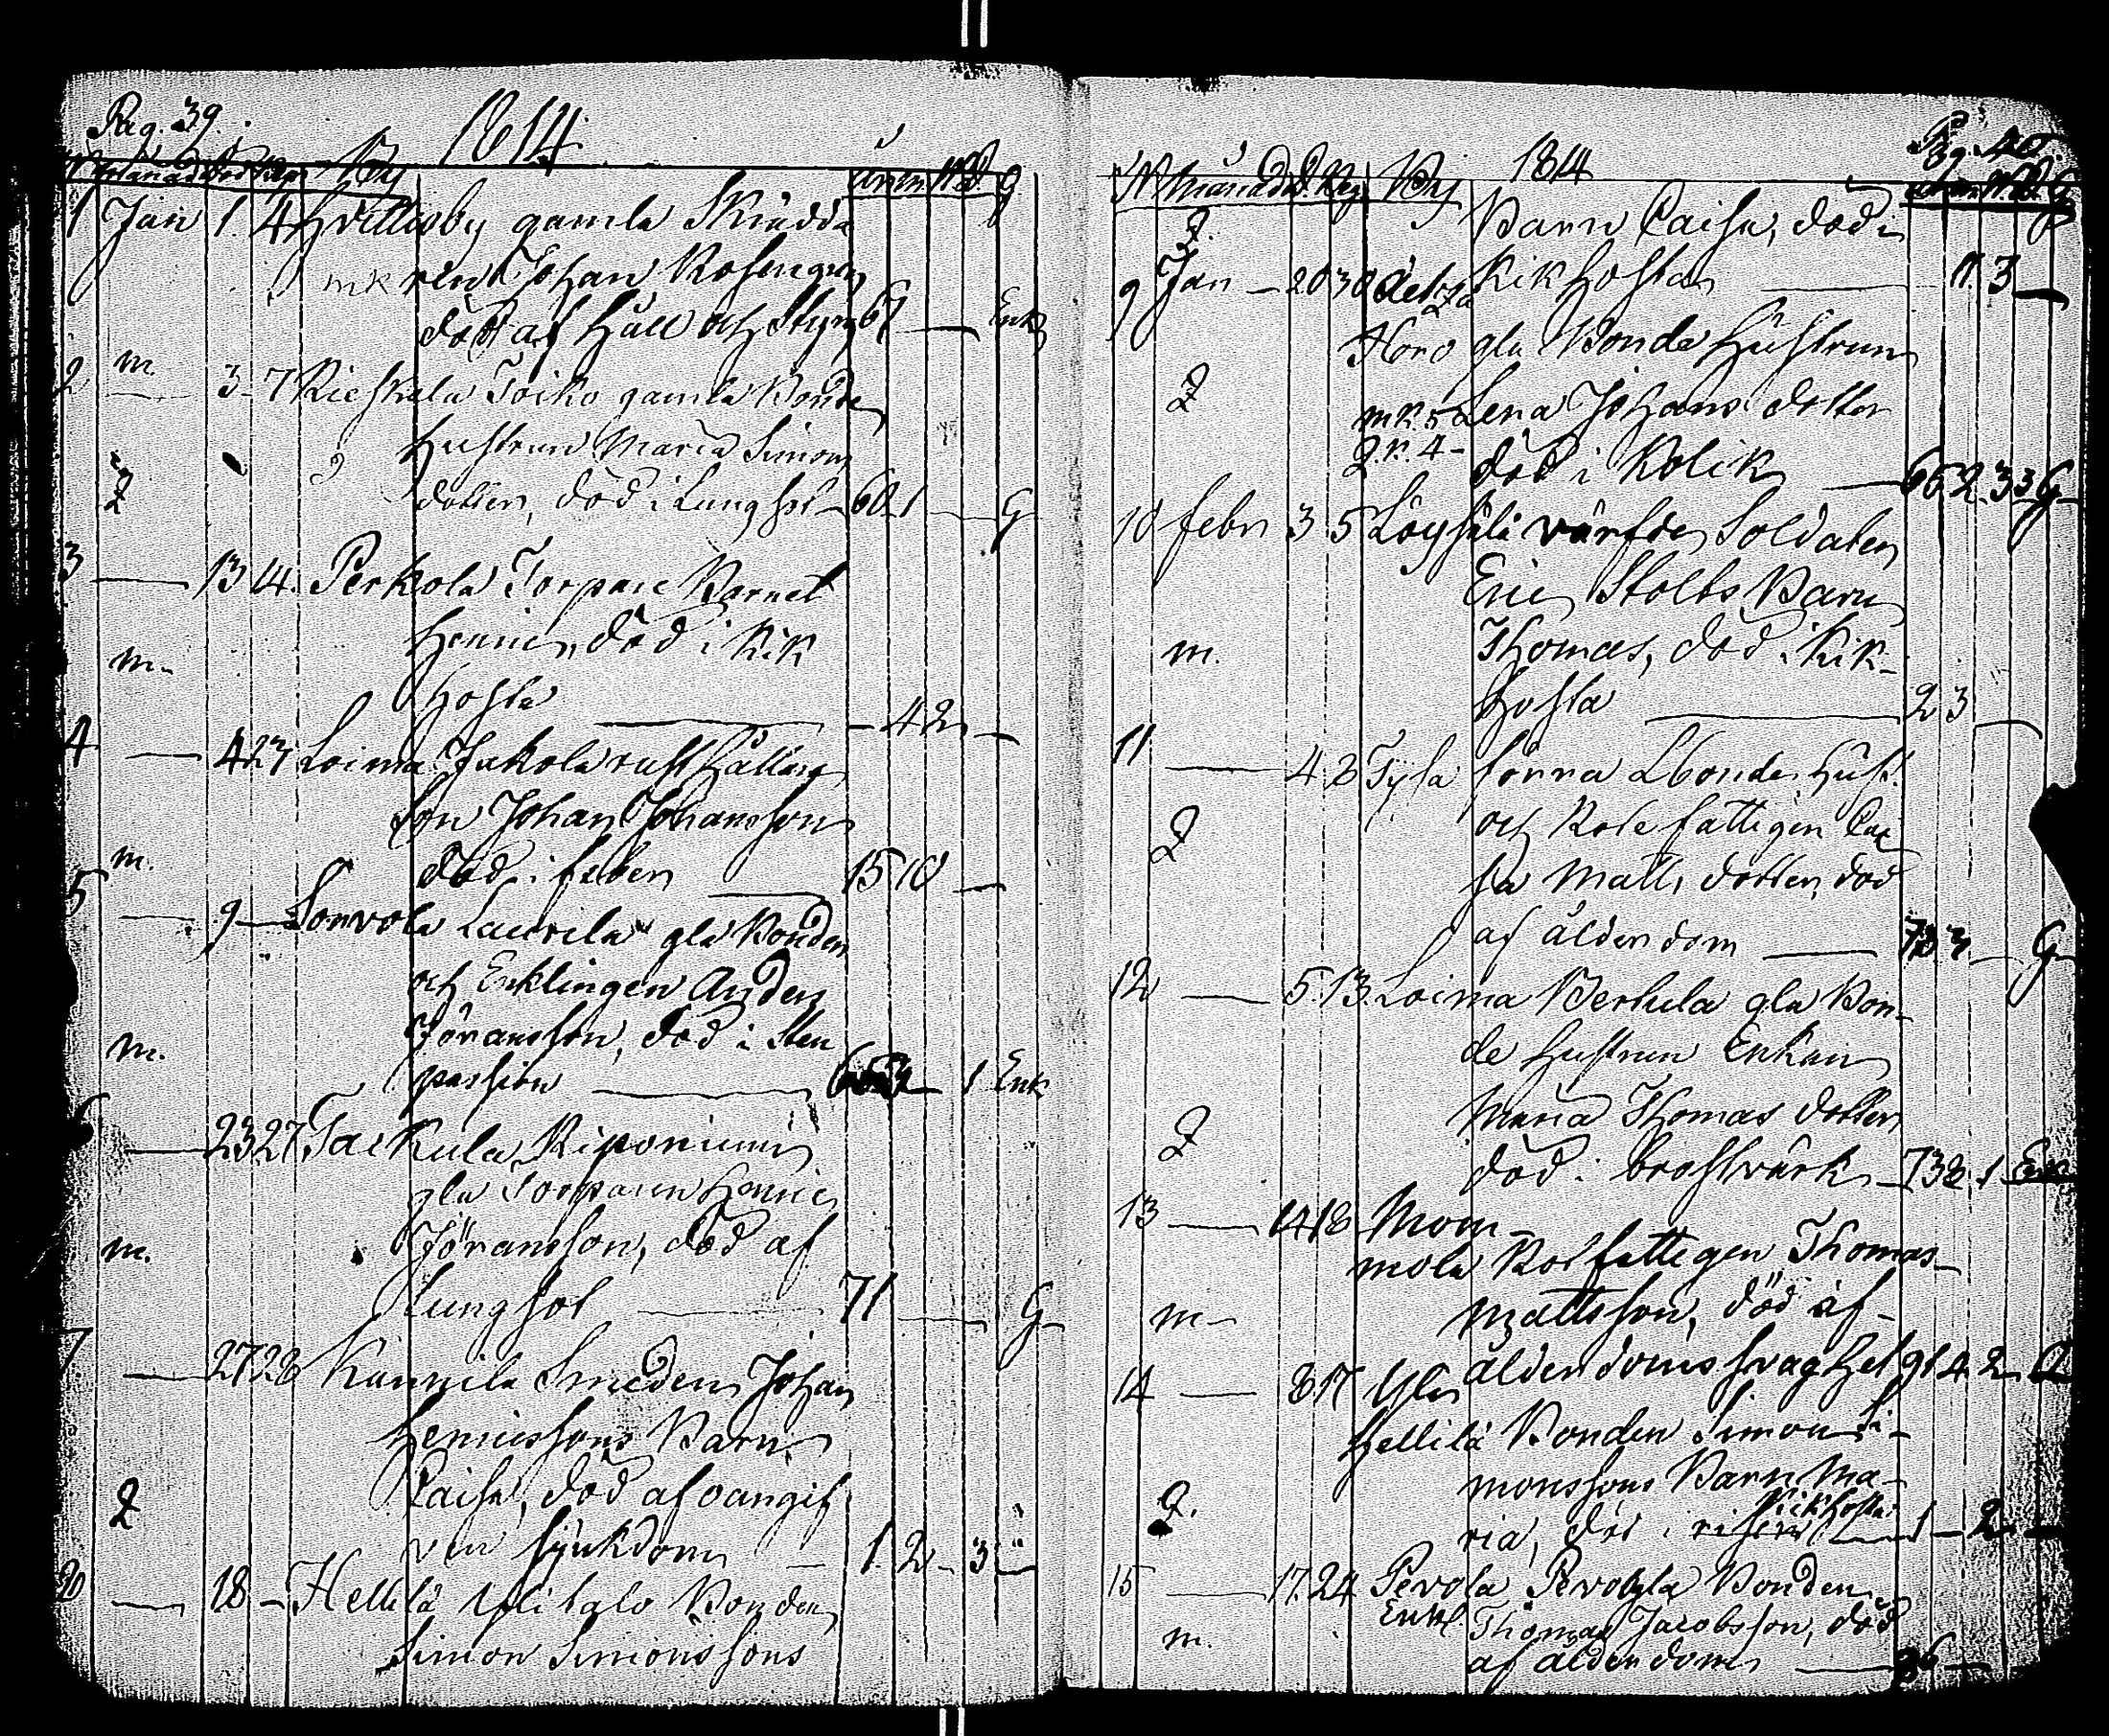 Pag. 39.
1814
By
1 Jan 1. 4 Hvittisby gamla Skrädda
mk ren Johan Rosengren
död af Håll och Styng 67 — Enk
m.
2 — 3 7 Rieskala Toiko gamla Bonde
Hustrun Maria Simons
dotter, död i Lungsot — 60 1 — G
3 — 13 14. Perkola Torpare Barnet
Henric, död i Kik
m.
hosta — 4 2 —
4 — 4 23 Loima Jakola rusthållars
Son Johan Johansson
m.
död i feber — 15 10 —
5 — 9 — Sonvola Laurila gla Bonden
och Enklingen Anders
Jöransson, död i Sten
m.
passion — 1 Enk
6 — 23 27 Taikula Riponiemi
gla Torparen Henric
Jöransson, död af
m.
Lungsot — 71 — G
7. — 27 28 Kannila Smeden Johan
Henricssons Barn
Caisa, död af oangif
ven sjukdom — 1. 2 - 3 —
— 18 - Hellilä Ylitalo Bonden
Simon Simonssons
1814
N Månad D. Beg By
Barn Caisa, död i
9 Jan — 20 30 Kikhosta — 11. 3 —
Horo gla Bonde Hustrun
mk. 5 Lena Johans dotter
Q.k. 4 - död i Kolik — 66 2 3 G
10 febr 3 5 Löysälä värfde Soldaten
Eric Stolts Barn
m. Thomas, död i Kik-
hosta — 2 3 —
11 — 4 8 Tyfa förra Lbonde Hust.
och Rote fattigen Cai
sa Matts dotter, död
af ålderdom — G
12 — 5. 13. Loima Berkula gla Bon-
de Hustrun Enkan
Maria Thomas dotter
död i bröstvärk — 73 8 1 Enk
13 — 14 18 Mom-
mola Rotfattigen Thomas
m — Mattsson, död af
ålderdoms svaghet 91 4 2
14 — 8 17 Yli
Hellilä Bonden Simon Si-
monssons Barn Ma-
Kikhosta
ria, död i — 1 - 2 —
15 — 17. 24 Pevola Pevola gla Bonden
Enkl. Thomas Jacobsson, död
m. af ålderdom — 86 —